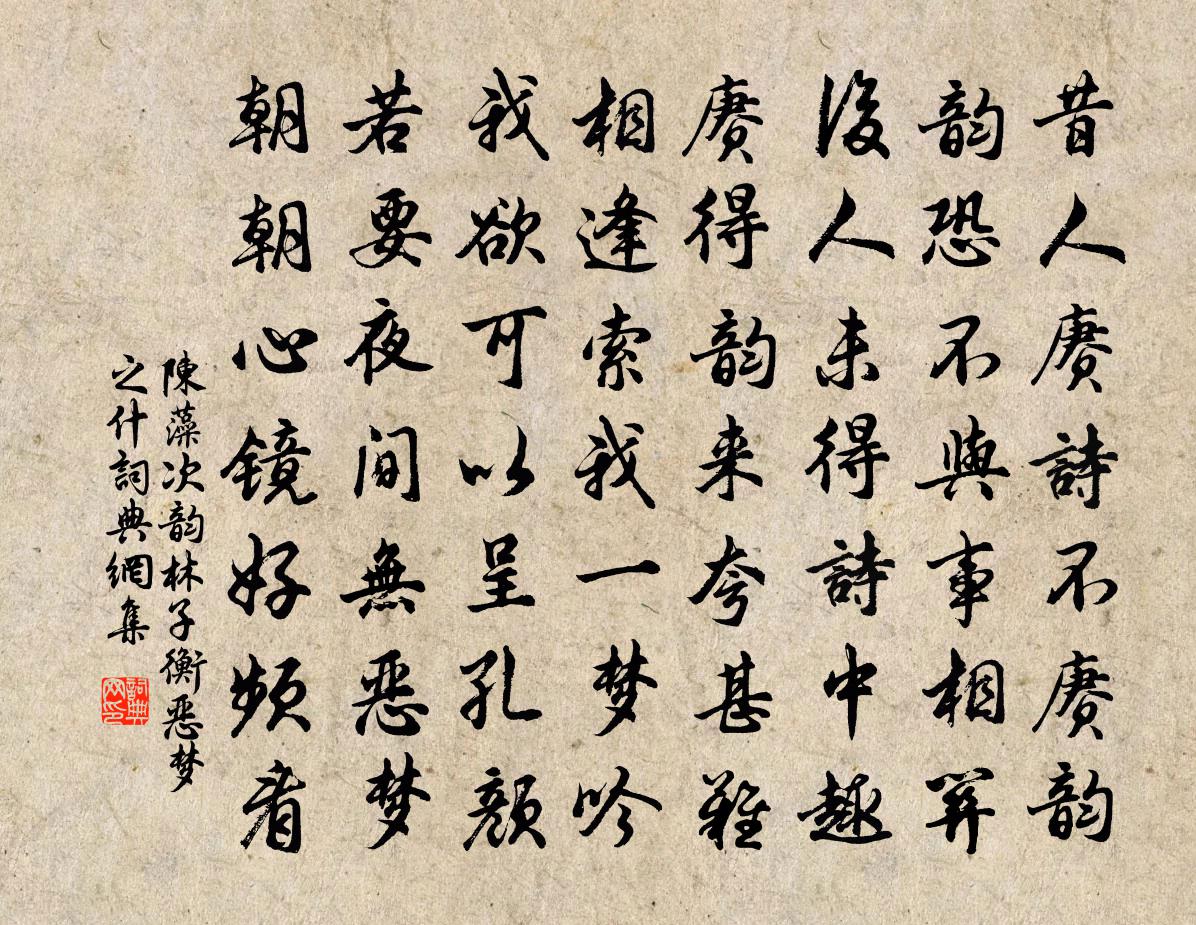 昔人赓詩不赓韵
韵恐不與事相關
後人未得詩中趣
赓得韵来夸甚難
相逢索我一梦吟
我欲可以呈孔顔
若要夜間無恶梦
朝朝心鏡好频看
陳藻次韵林子衡恶梦
之什詞典網集
詞典网印